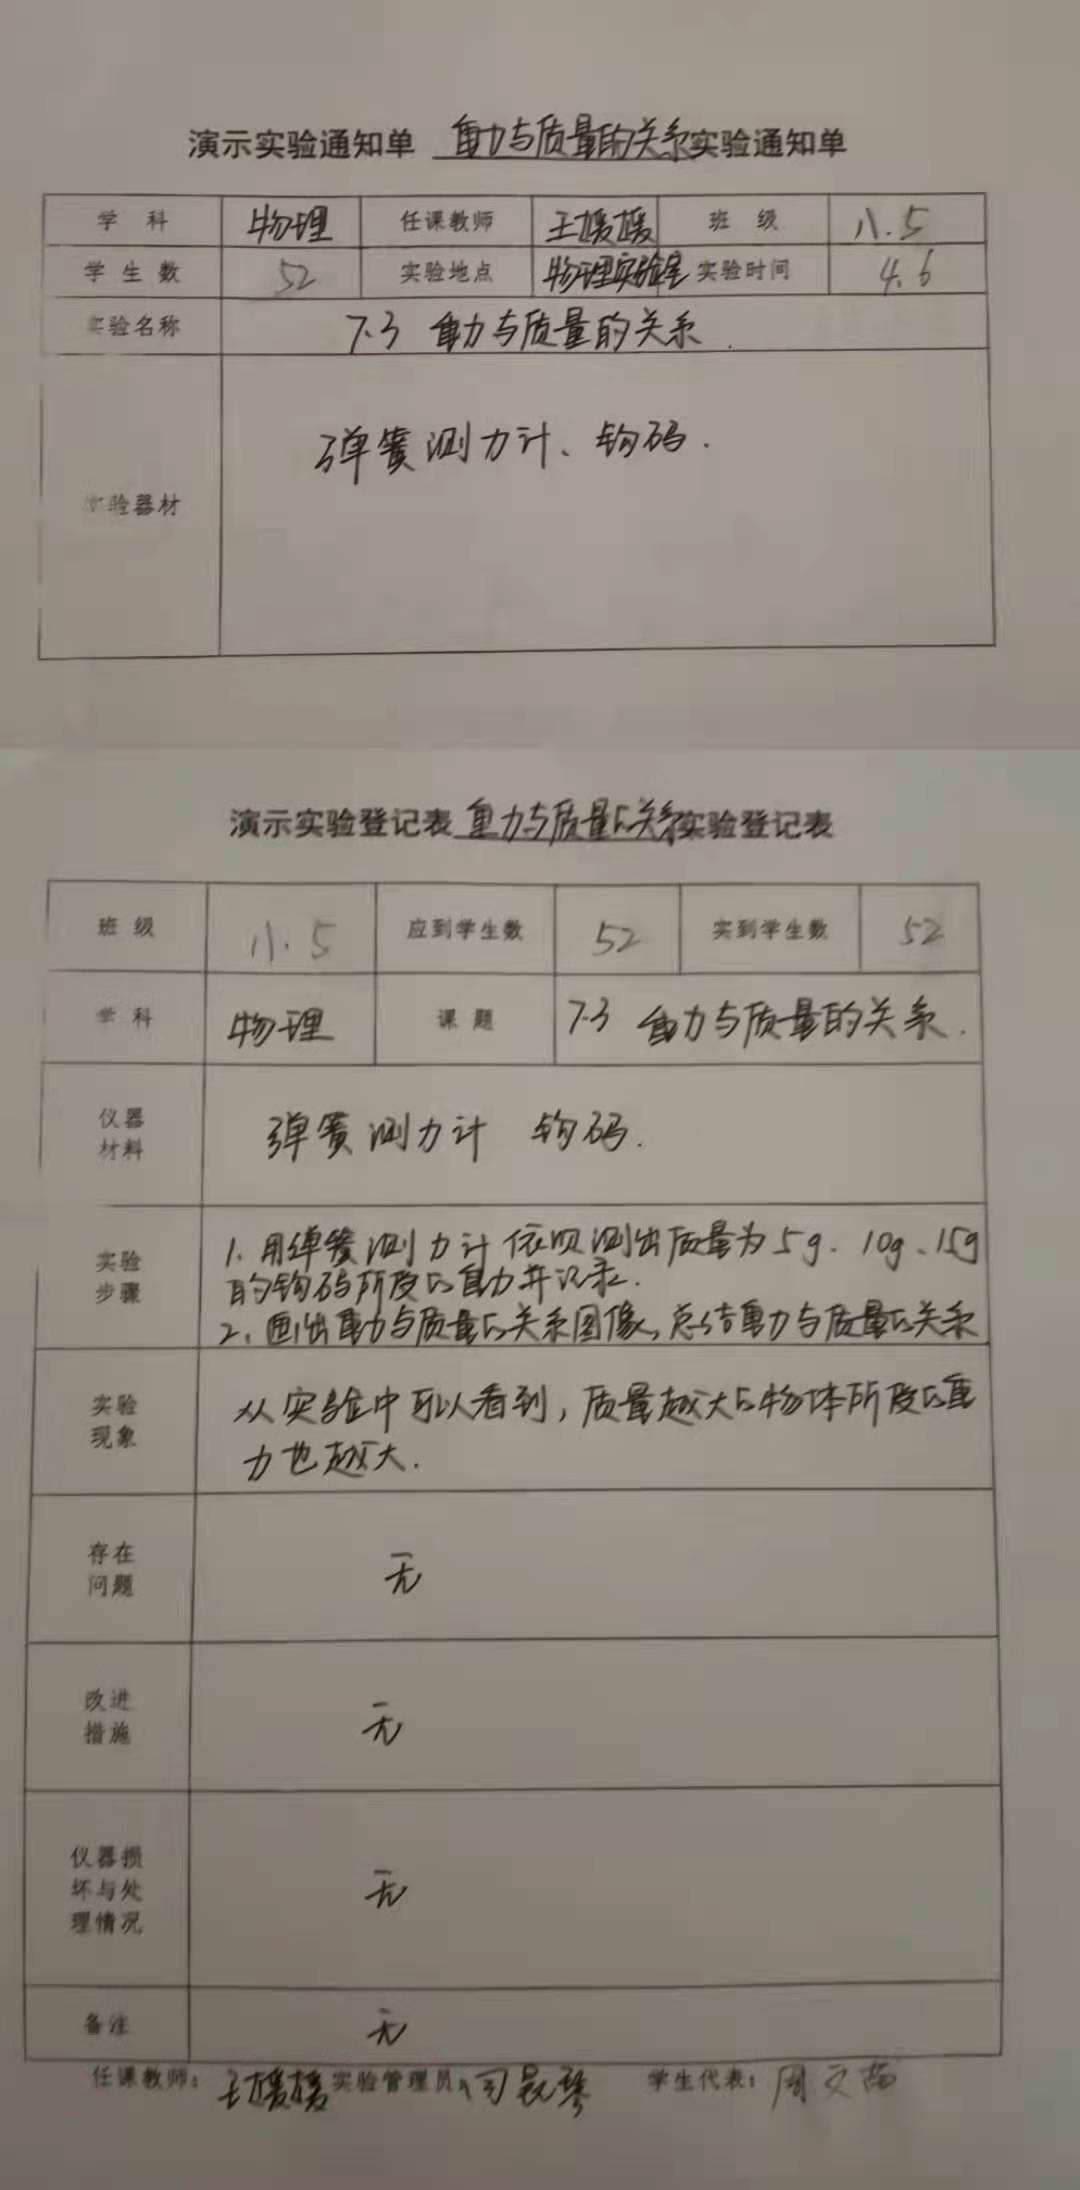 演示实验通知单 重力与质量的关系实验通知单
学 科 物理 任课教师 王媛媛 班 级 八.5
学 生 数 52 实验地点 物理实验室 实验时间 4.6
实验名称 7.3 重力与质量的关系.
实验器材 弹簧测力计、钩码.
演示实验登记表 重力与质量的关系实验登记表
班 级 八.5 应到学生数 52 实到学生数 52
学 科 物理 课 题 7.3 重力与质量的关系.
仪器
材料
弹簧测力计 钩码.
实验
步骤
1. 用弹簧测力计依次测出质量为5g、10g、15g
的钩码所受的重力并记录.
2. 画出重力与质量的关系图像,总结重力与质量的关系
实验
现象
从实验中可以看到,质量越大的物体所受的重
力也越大.
存在
问题
无
改进
措施
无
仪器损
坏与处
理情况
无
备注 无
任课教师: 王媛媛 实验管理员: 学生代表: 周文